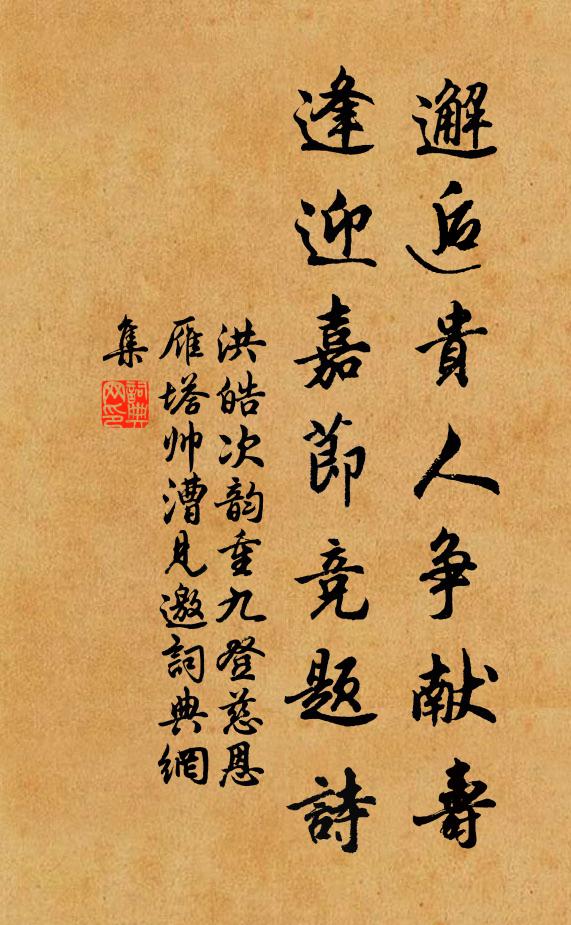 邂逅貴人争献壽
逢迎嘉節竞题詩
洪皓次韵重九登慈恩
雁塔帅漕見邀詞典網
集
詞典网印